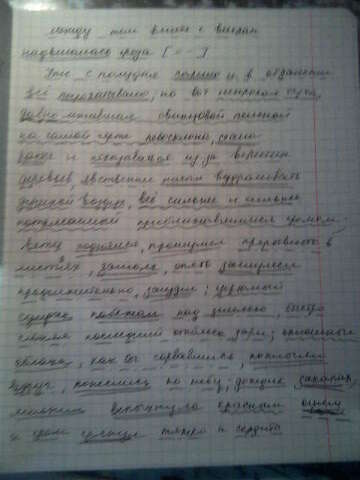 между тем вместе с вечером
надвигалась гроза [ - = ].
Уже с полудня парило и в отдалении
всё погрохатывало, но вот широкая туча,
давно лежавшая свинцовой пеленой
на самой черте небосклона, стала
расти и показываться из-за вершин
деревьев, явственнее начал вздрагивать
душный воздух, всё сильнее и сильнее
потрясаемый приближавшимся громом.
Ветер поднялся, прошумел порывисто в
листьях, замолк, опять зашумел
продолжительно, загудел; угрюмый
сумрак побежал над землёю, быстро
сгоняя последний отблеск зари; сплошные
облака, как бы сорвавшись, поплыли
вдруг, понеслись по небу; дождик закапал,
молния вспыхнула красным огнем,
и гром грянул тяжко и сердито